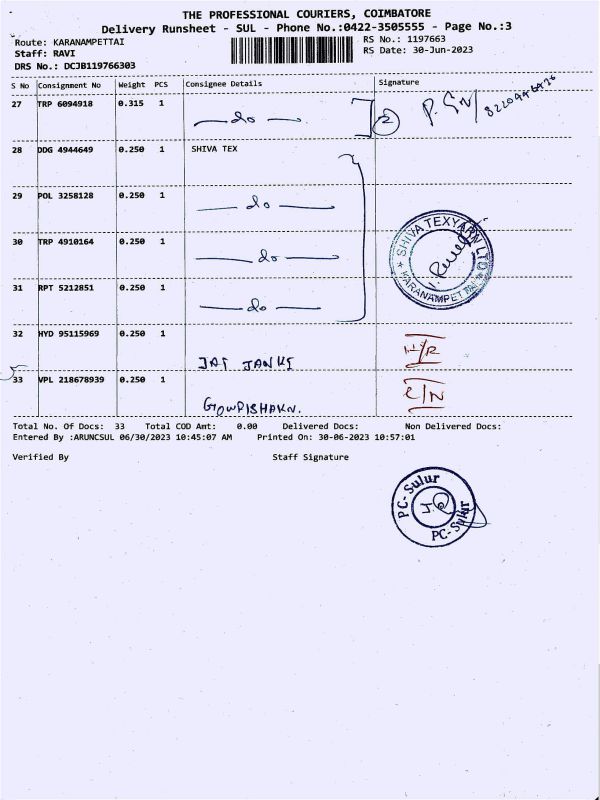 THE PROFESSIONAL COURIERS, COIMBATORE
Delivery Runsheet - SUL - Phone No.:0422-3505555 - Page No.:3
Route: KARANAMPETTAI
RS No.: 1197663
Staff: RAVI
RS Date: 30-Jun-2023
DRS No.: DCJB119766303
S No Consignment No Weight PCS Consignee Details Signature
27 TRP 6094918 0.315 1 do 2
28 DDG 4944649 0.250 1 SHIVA TEX
29 POL 3258128 0.250 1 do
30 TRP 4910164 0.250 1 do
SHIVA TEXYARN LTD
KARANAMPET
31 RPT 5212851 0.250 1 do
32 HYD 95115969 0.250 1 JAI JANKI
33 VPL 218678939 0.250 1
Total No. Of Docs: 33 Total COD Amt: 0.00 Delivered Docs: Non Delivered Docs:
Entered By :ARUNCSUL 06/30/2023 10:45:07 AM Printed On: 30-06-2023 10:57:01
Verified By Staff Signature
PC-Sulur
PC-Sulur